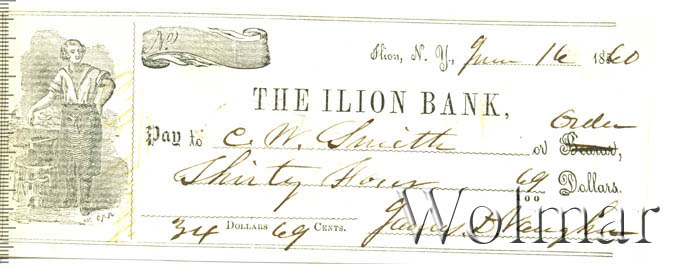 No.
Ilion, N. Y., June 16 1860
THE ILION BANK,
Order
Pay to C. W. Smith or Bearer,
Thirty Four 69/00 Dollars.
34 DOLLARS 69 CENTS.
Wolmar